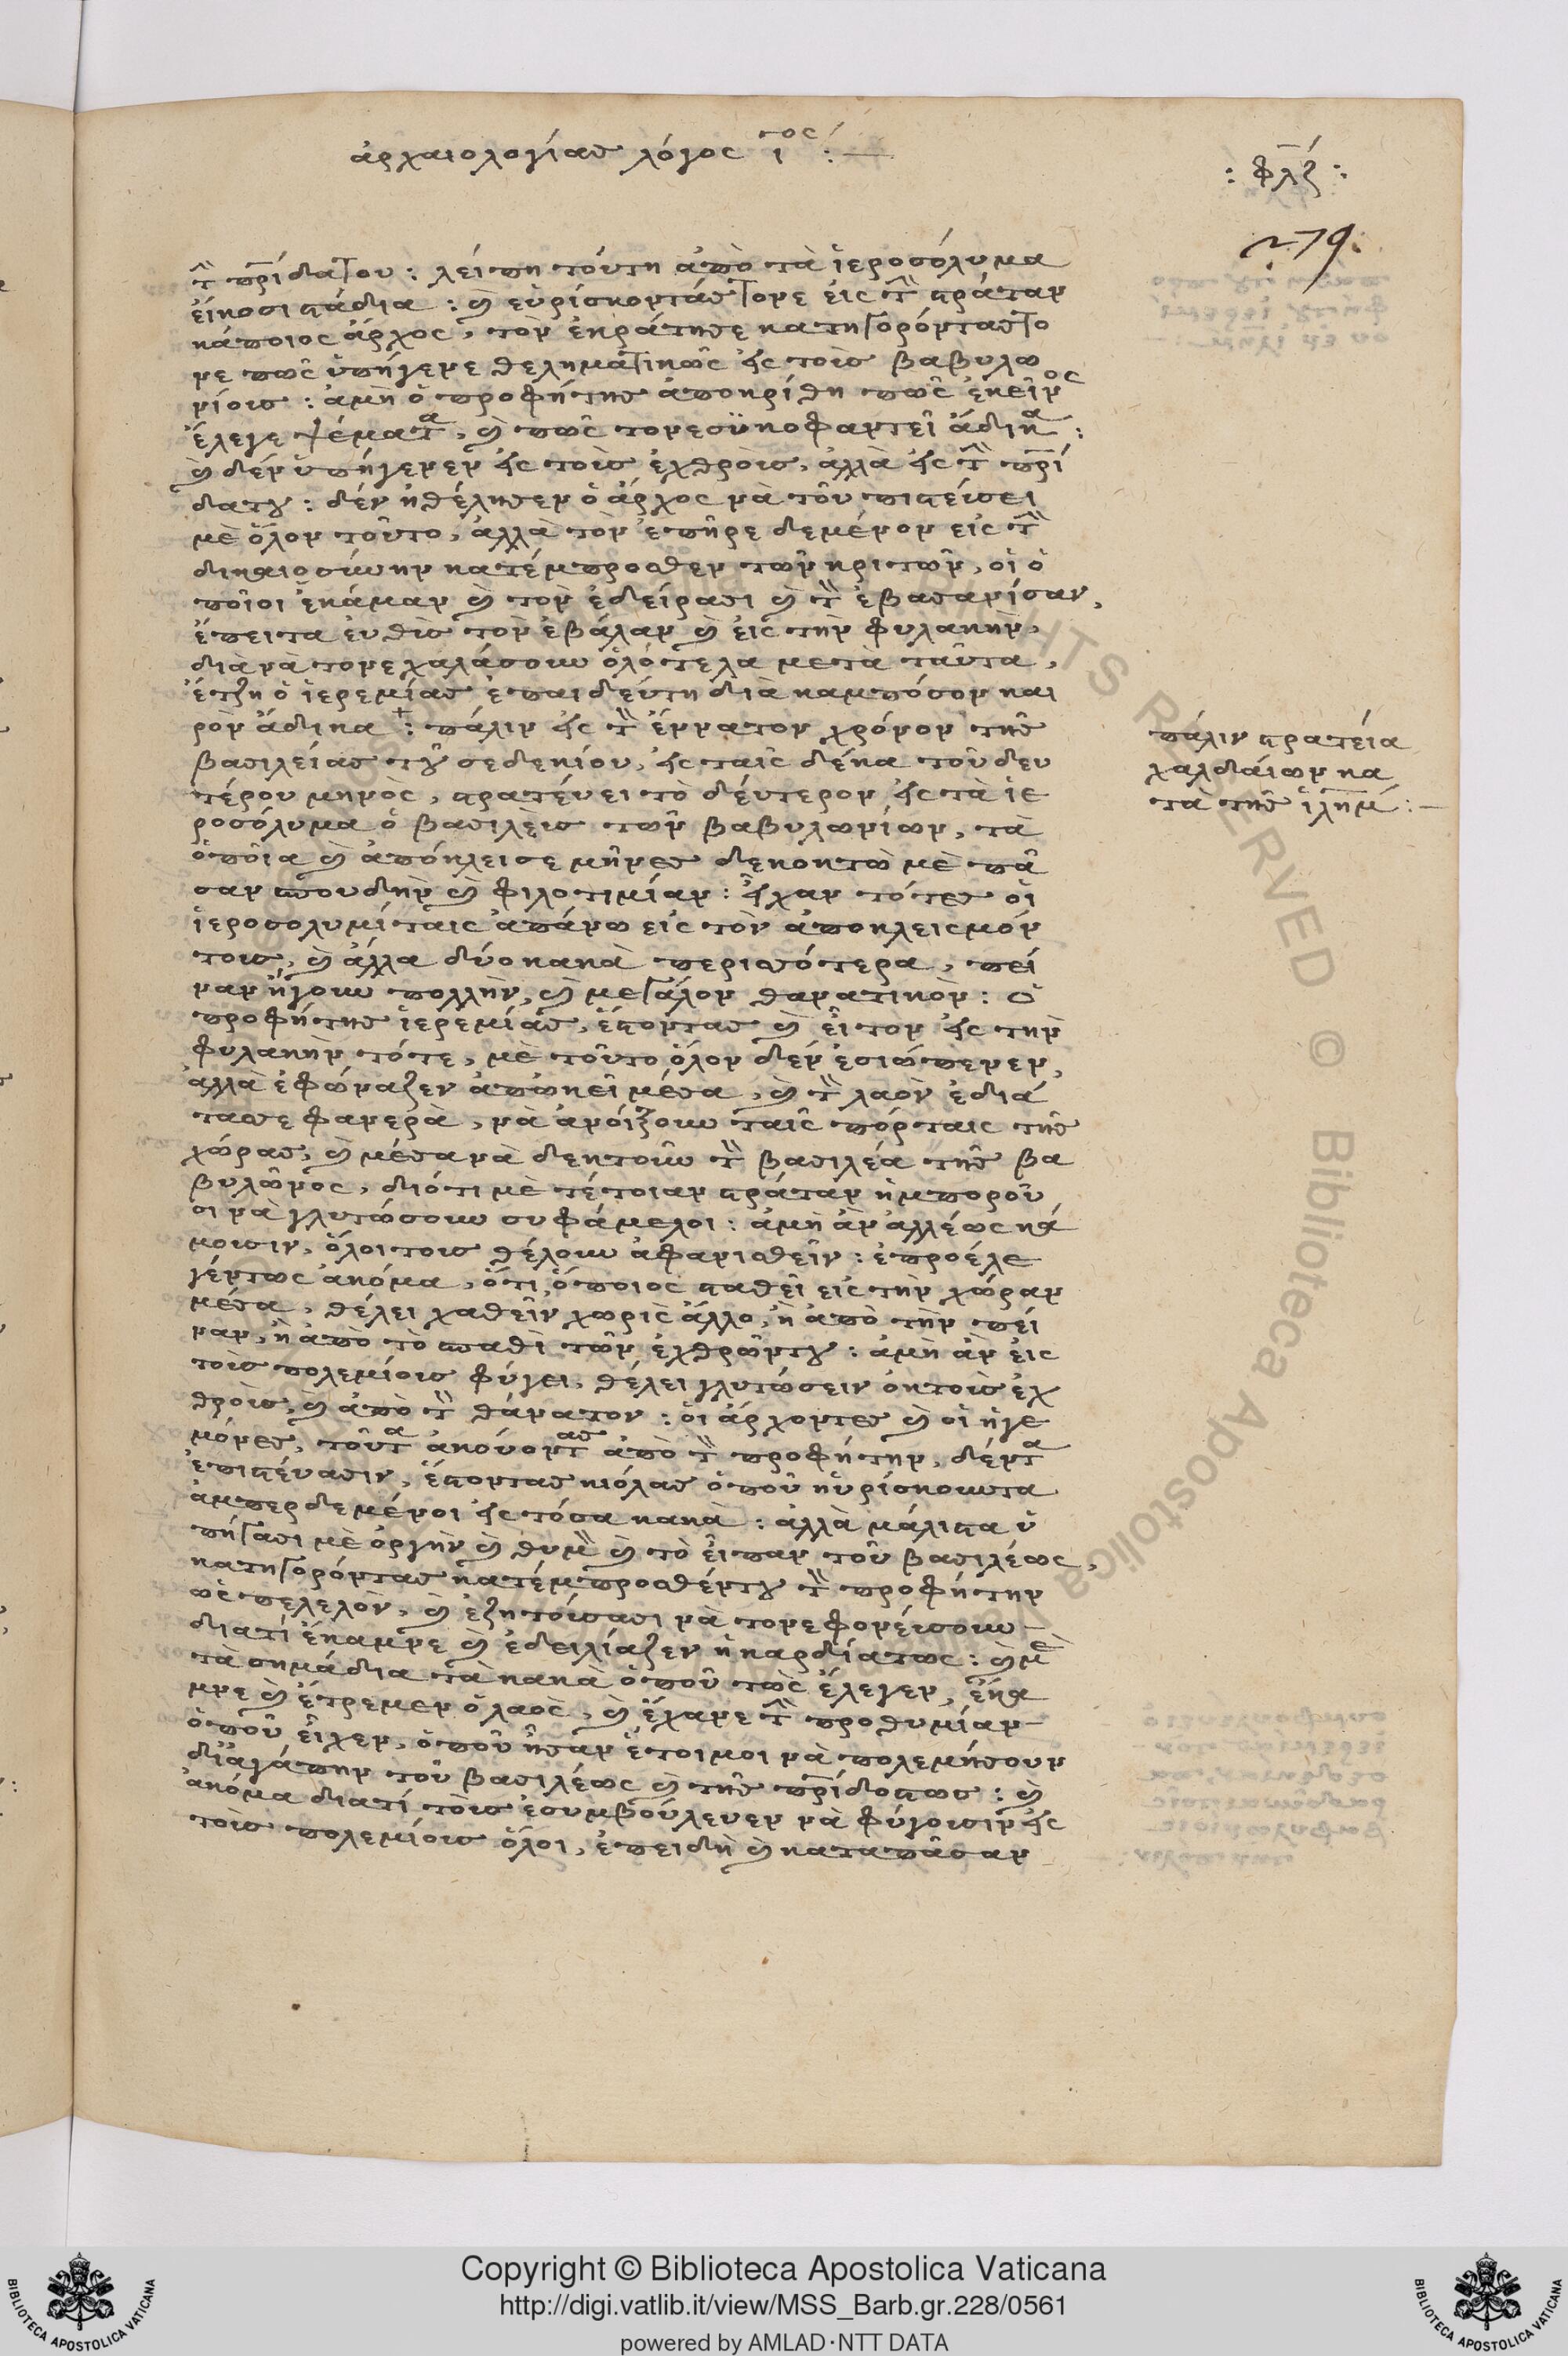 ἀρχαιολογίας λόγος ι τος :—
: φλζ :
279.
τὴν πρίδατου : λείπη τούτη ἀπὸ τὰ ἱεροσόλυμα
εἴκοσι στάδια : καὶ εὑρίσκοντάς τονε εἰς τὴν στράταν
κάποιος ἄρχος, τὸν ἐκράτησε κατηγορόντας το
νε πῶς ὑπήγενε θεληματικῶς εἰς τοὺς βαβυλω
νίους : ἀμὴ ὁ προφήτης ἀποκρίθη πῶς ἐκεῖνος
ἔλεγε ψέματα, καὶ πῶς τονε συκοφαντεῖ ἄδικα :
καὶ δὲν ὑπήγενεν εἰς τοὺς ἐχθροὺς, ἀλλὰ εἰς τὴν πρί
δατου : δὲν ἠθέλησεν ὁ ἄρχος νὰ τοῦ πιστεύσει
μὲ ὅλον τοῦτο, ἀλλὰ τὸν ἐπῆρε δεμένον εἰς τὴν
δικαιοσύνην κατέμπροσθεν τῶν κριτῶν, οἱ ὁ
ποῖοι ἐκάμαν καὶ τὸν ἐδείρασι καὶ τὸν ἐβασανίσαν,
ἔπειτα εὐθὺς τὸν ἐβάλαν καὶ εἰς τὴν φυλακὴν,
διὰ νὰ τονε χαλάσουν ὁλότελα μετὰ ταῦτα,
ἔτζη ὁ ἱερεμίας ἐπαιδεύτη διὰ καμπόσον και
ρὸν ἄδικα + : πάλιν εἰς τὸν ἔννατον χρόνον τῆς
βασιλείας τοῦ σεδεκίου, εἰς ταῖς δέκα τοῦ δευ
τέρου μηνὸς, στρατεύει τὸ δεύτερον εἰς τὰ ἱε
ροσόλυμα ὁ βασιλεὺς τῶν βαβυλωνίων, τὰ
ὁποῖα καὶ ἀπόκλεισε μῆνες δεκοκτὼ μὲ πᾶ
σαν σπουδὴν καὶ φιλοτιμίαν : εἶχαν τότες οἱ
ἱεροσολυμίταις ἀπάνω εἰς τὸν ἀποκλεισμόν
τους, καὶ ἄλλα δύο κακὰ περισσότερα, πεί
ναν ἤγουν πολλὴν, καὶ μεγάλον θανατικὸν : ὁ
προφήτης ἱερεμίας, ἔστοντας καὶ εἶ τον εἰς τὴν
φυλακὴν τότε, μὲ τοῦτο ὅλον δὲν ἐσιώπενεν,
ἀλλὰ ἐφώναζεν ἀπὠκεῖ μέσα, καὶ τὸν λαὸν ἐδιά
τασσε φανερὰ, νὰ ἀνοίξουν ταῖς πόρταις τῆς
χώρας, καὶ μέσα νὰ δεκτοῦν τὸν βασιλέα τῆς βα
βυλῶνος, διότι με τέτοιαν στράταν ἠμποροῦ
σι νὰ γλυτώσουν συφάμελοι : ἀμὴ ἂν ἀλλέως κά
μουσιν, ὅλοι τους θέλουν ἀφανισθεῖν : ἐπροέλε
γέντως ἀκόμα, ὅτι ὅποιος σταθεῖ εἰς τὴν χώραν
μέσα, θέλει χαθεῖν χωρὶς ἄλλο, ἢ ἀπὸ τὴν πεί
ναν, ἢ ἀπὸ τὸ σπαθὶ τῶν ἐχθρῶντου : ἀμὴ ἂν εἰς
τοὺς πολεμίους φύγει, θέλει γλυτώσειν ὀκ τοὺς ἐχ
θροὺς, καὶ ἀπὸ τὸν θάνατον : οἱ ἄρχοντες καὶ οἱ ἡγε
μόνες, τοῦτα ἀκούοντας ἀπὸ τὸν προφήτην, δέντα
ἐπιστεύασιν, ἔστοντας κιόλας ὁποῦ ηὑρίσκουντα
ἀμπερδεμένοι εἰς τόσα κακὰ : ἀλλὰ μάλιστα ὑ
πήγασι μὲ ὀργὴν καὶ θυμὸν καὶ τὸ εἶπαν τοῦ βασιλέως,
κατηγορόντας κατέμπροσθέντου τὸν προφήτην
ὡς πελελὸν, καὶ ἐζητούσασι νὰ τονε φονεύσουν
διατί ἔκαμνε καὶ ἐδειλίαζεν ἡ καρδίατως : καὶ μὲ
τὰ σημάδια τὰ κακὰ ὁποῦ τῶς ἔλεγεν, ἔκα
μνε καὶ ἔτρεμεν ὁ λαὸς, καὶ ἔχανε τὴν προθυμίαν
ὁποῦ εἶχεν, ὁποῦ ἦσαν ἕτοιμοι νὰ πολεμήσουν
δι᾽ἀγάπην τοῦ βασιλέως καὶ τῆς πρίδοςτως : καὶ
ἀκόμα διατί τοὺς ἐσυμβούλευεν νὰ φύγουσιν εἰς
τοὺς πολεμίους ὅλοι, ἐπειδὴ καὶ καταπᾶσαν
πάλιν στρατεία
χαλδαίων κα
τὰ τῆς ἱλημ :—
Copyright © Biblioteca Apostolica Vaticana
http://digi.vatlib.it/view/MSS_Barb.gr.228/0561
powered by AMLAD·NTT DATA
BIBLIOTECA APOSTOLICA VATICANA
BIBLIOTECA APOSTOLICA VATICANA